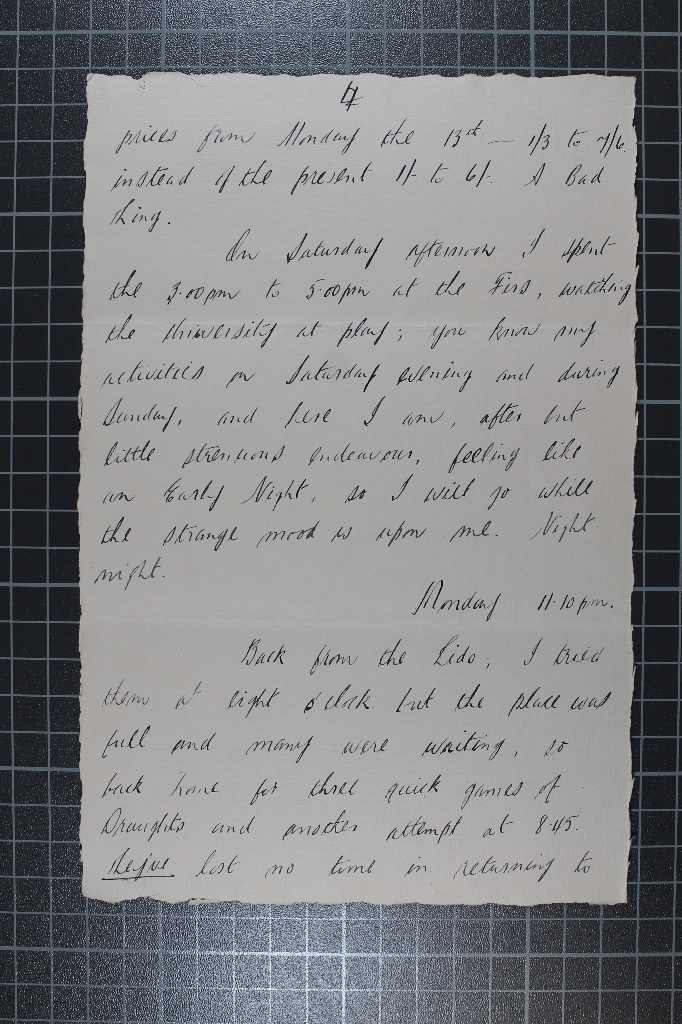 4
prices from Monday the 13th — 1/3 to 7/6.
instead of the present 1/- to 6/-. A Bad
thing.
On Saturday afternoon I spent
the 3.00pm to 5.00pm at the Firs, watching
the University at play; you know my
activities on Saturday evening and during
Sunday, and here I am, after but
little strenuous endeavour, feeling like
an Early Night, so I will go while
the strange mood is upon me. Night
night.
Monday 11.10 pm.
Back from the Lido; I tried
them at eight o'clock but the place was
full and many were waiting, so
back home for three quick games of
Draughts and another attempt at 8.45.
They've lost no time in returning to